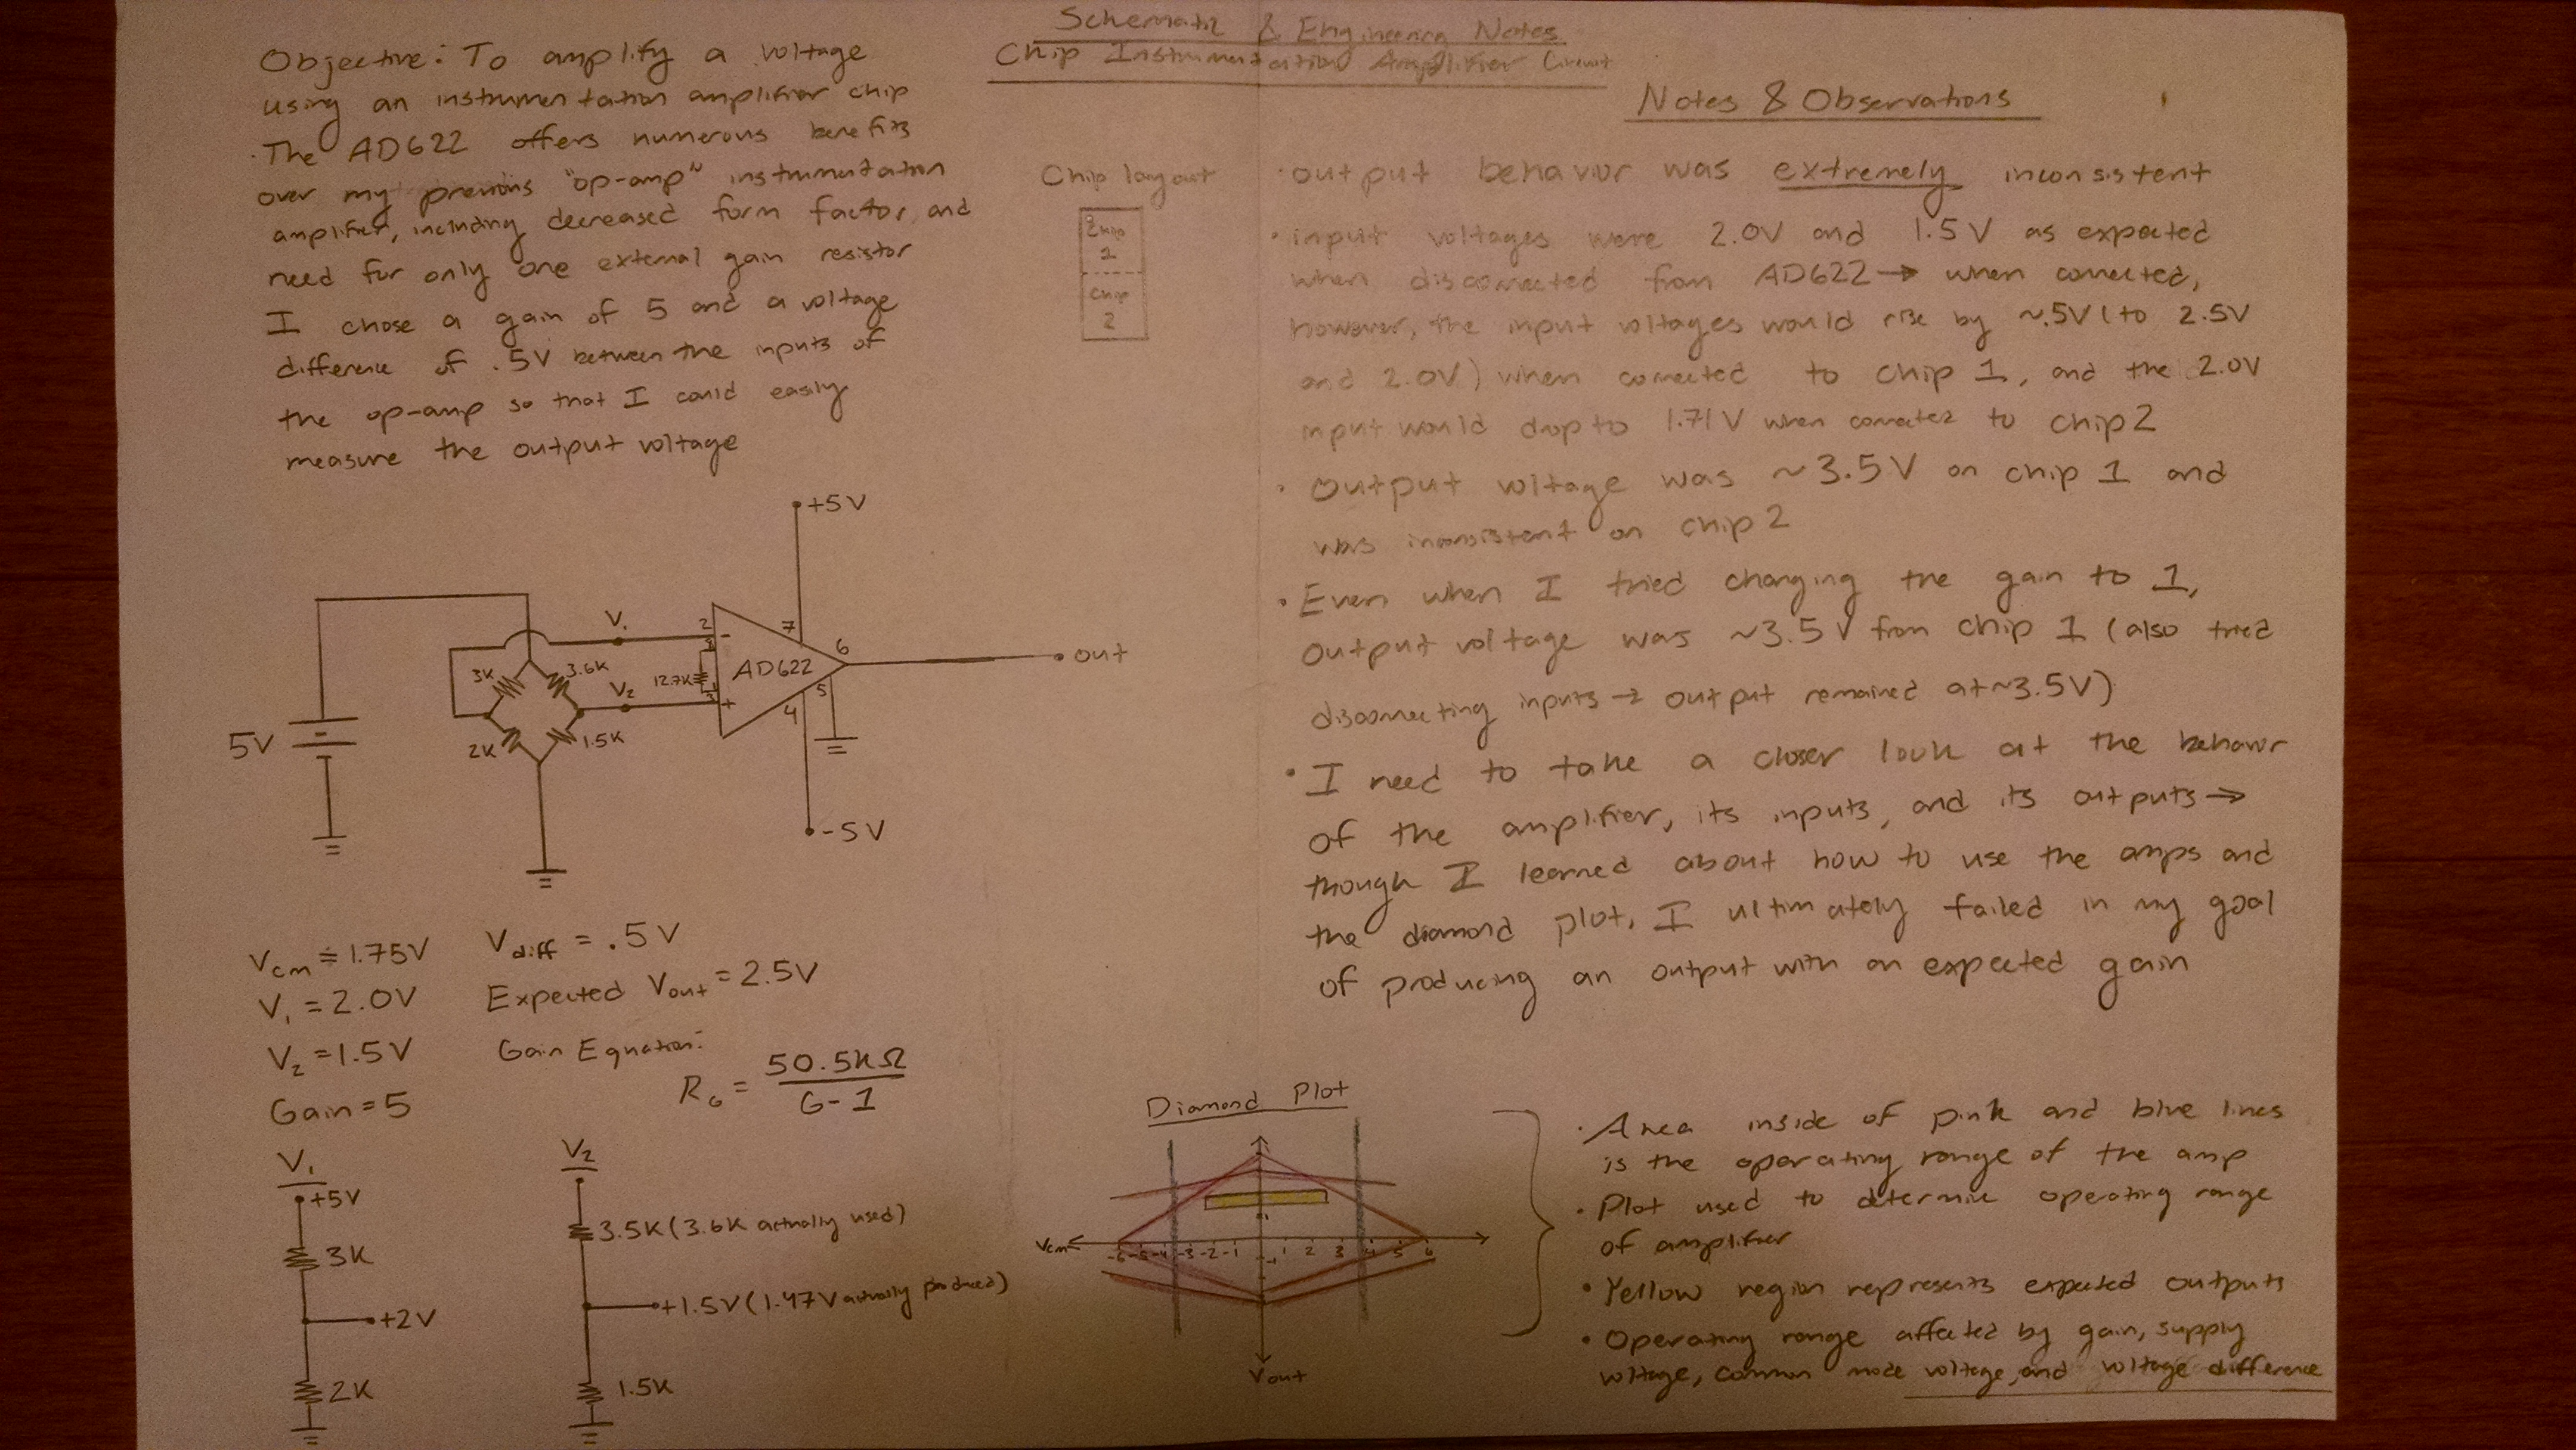 Schematic & Engineering Notes
Chip Instrumentation Amplifier Circuit
Objective: To amplify a voltage
using an instrumentation amplifier chip
· The AD622 offers numerous benefits
over my previous "op-amp" instrumentation
amplifier, including decreased form factor, and
need for only one external gain resistor
I chose a gain of 5 and a voltage
difference of .5V between the inputs of
the op-amp so that I could easily
measure the output voltage
+5V
V1
2
-
7
6
out
3K
3.6K
V2
12.7K
AD622
+
5
4
5V
2K
1.5K
-5V
Vcm = 1.75V
Vdiff = .5V
V1 = 2.0V
Expected Vout = 2.5V
V2 = 1.5V
Gain Equation:
Gain = 5
RG = 50.5kΩ / G-1
V1
+5V
3K
+2V
2K
V2
3.5K (3.6K actually used)
+1.5V (1.47V actually produced)
1.5K
Chip layout
Chip
1
Chip
2
Notes & Observations
· output behavior was extremely inconsistent
· input voltages were 2.0V and 1.5V as expected
when disconnected from AD622 → when connected,
however, the input voltages would rise by ~.5V (to 2.5V
and 2.0V) when connected to chip 1, and the 2.0V
input would drop to 1.71V when connected to chip 2
· output voltage was ~3.5V on chip 1 and
was inconsistent on chip 2
· Even when I tried changing the gain to 1,
output voltage was ~3.5V from chip 1 (also tried
disconnecting inputs → output remained at ~3.5V)
· I need to take a closer look at the behavior
of the amplifier, its inputs, and its outputs →
though I learned about how to use the amps and
the diamond plot, I ultimately failed in my goal
of producing an output with an expected gain
Diamond Plot
Vcm
-6 -5 -4 -3 -2 -1 1 2 3 4 5 6
-1
Vout
· Area inside of pink and blue lines
is the operating range of the amp
· Plot used to determine operating range
of amplifier
· Yellow region represents expected outputs
· Operating range affected by gain, supply
voltage, common mode voltage, and voltage difference